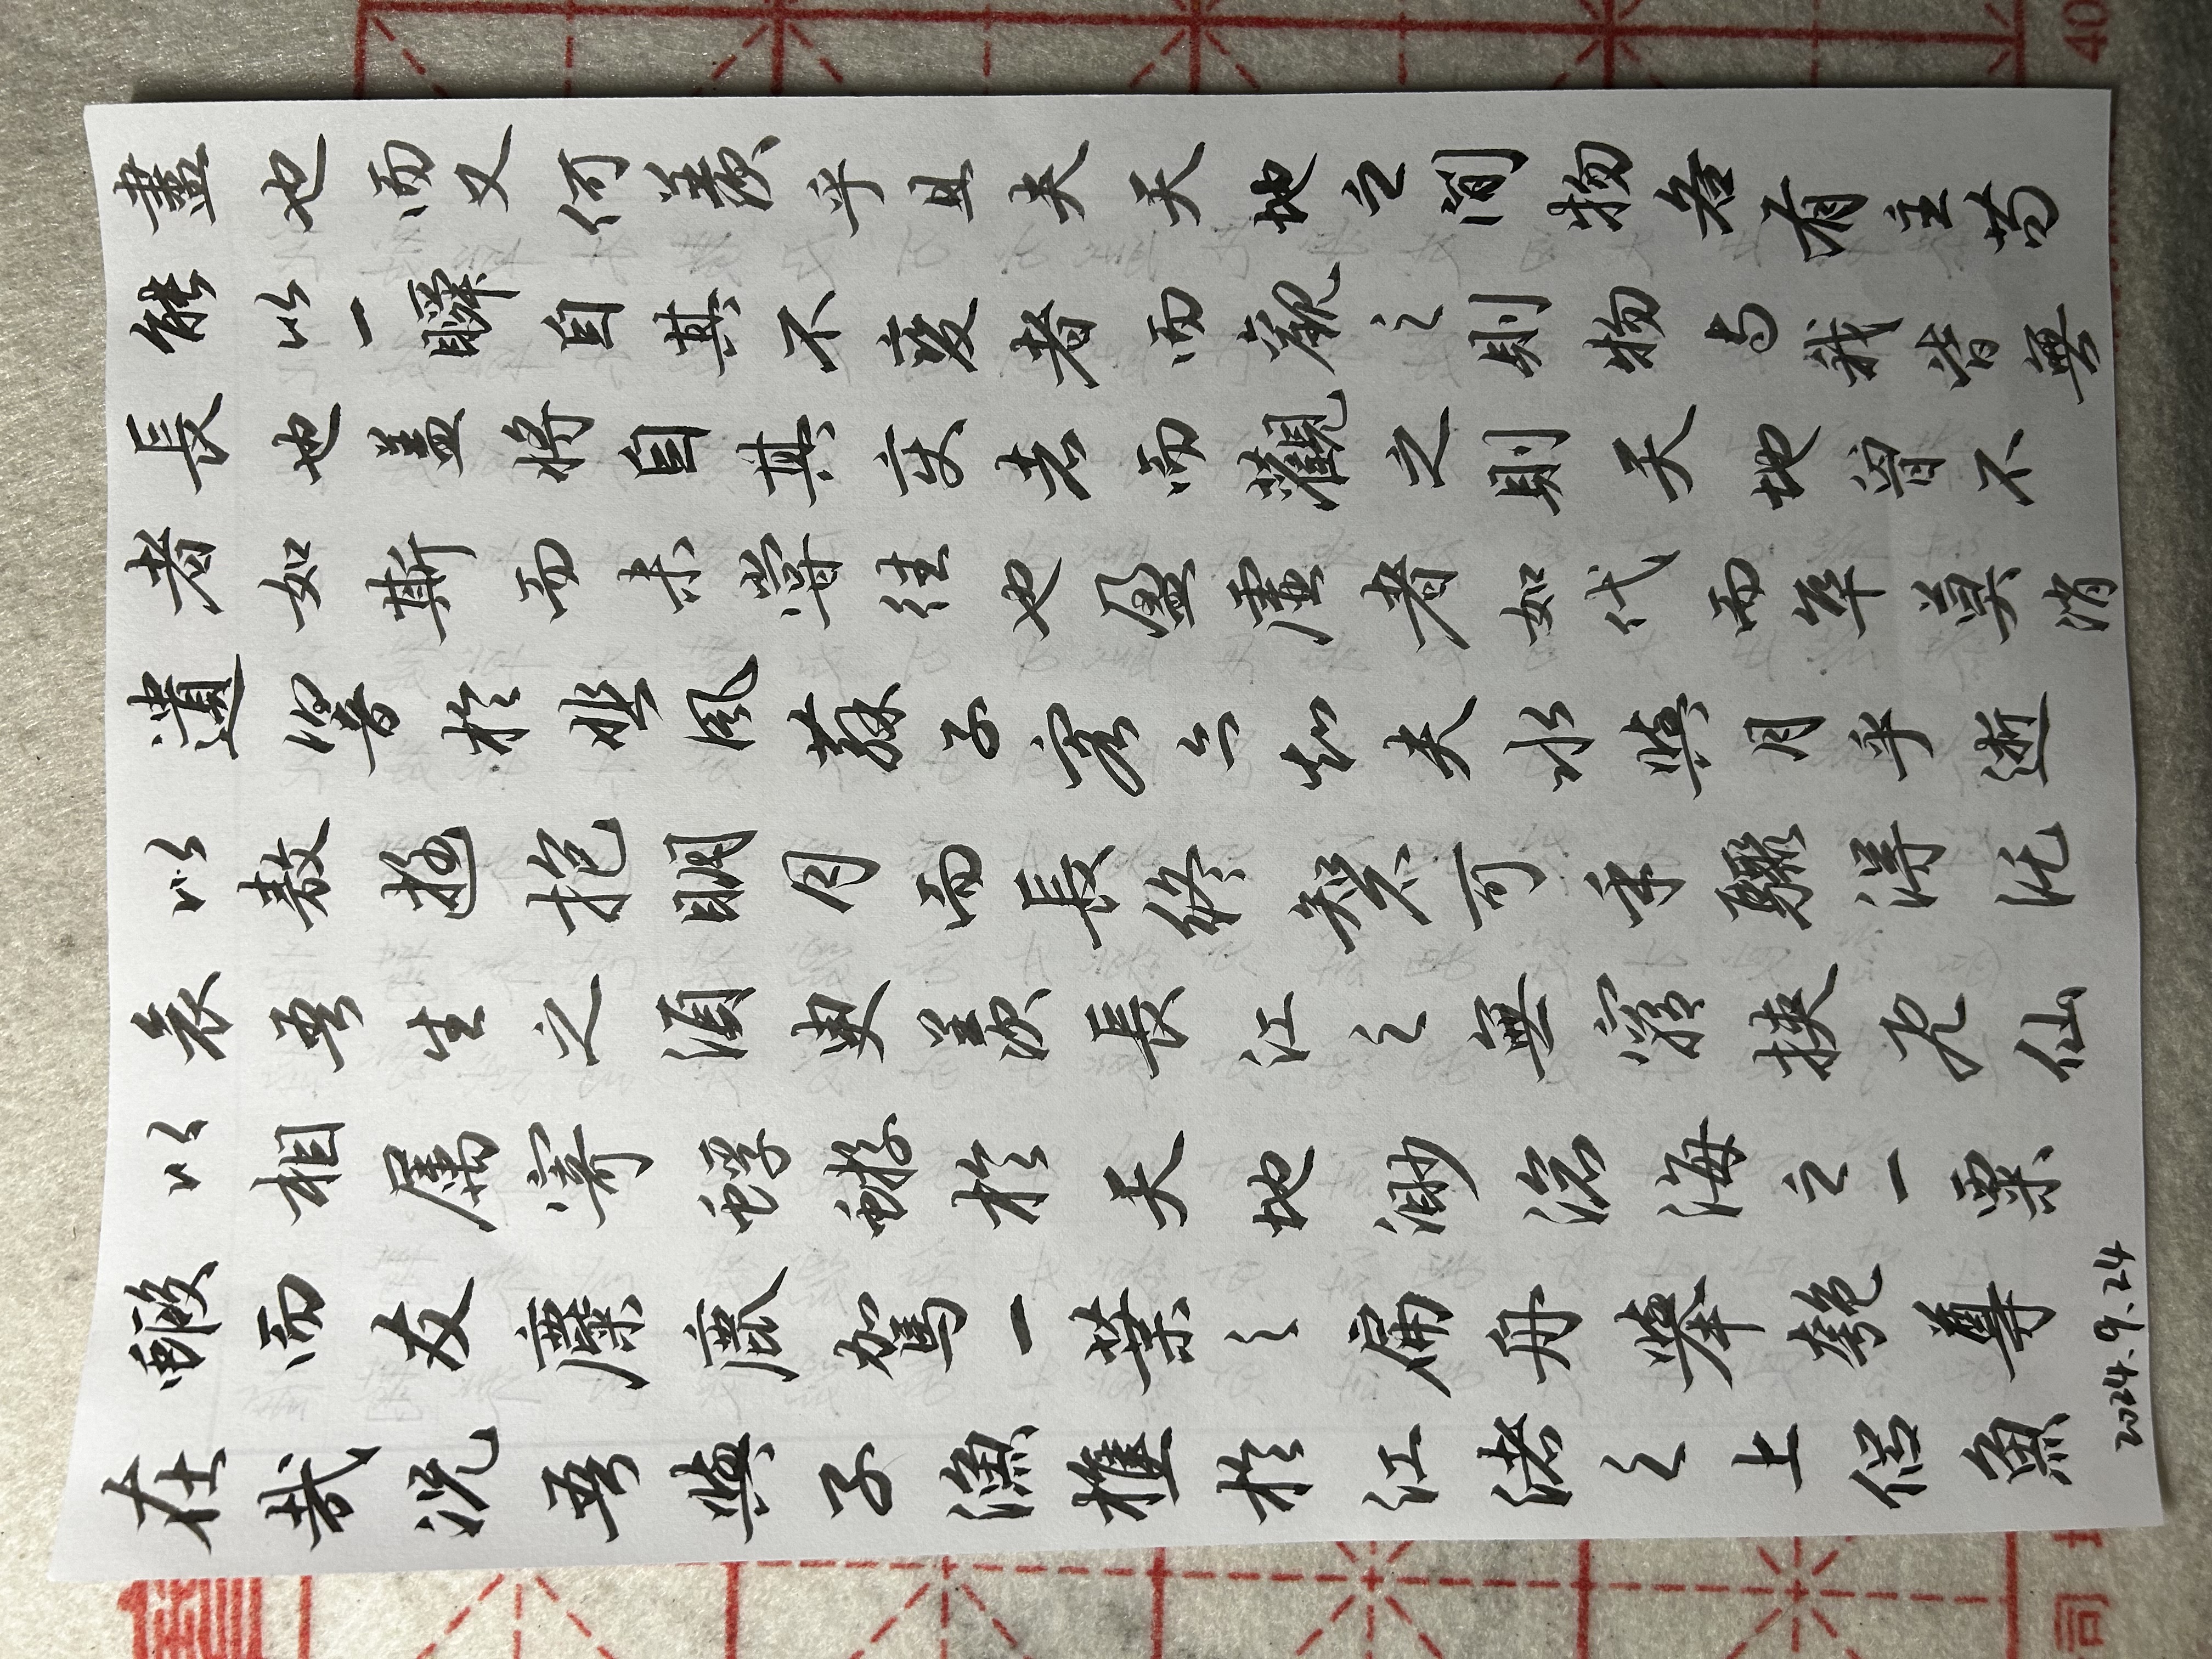 在哉況吾與子漁樵於江渚之上侶魚
蝦而友麋鹿駕一葉之扁舟舉匏尊
以相属寄蜉蝣於天地渺滄海之一粟
哀吾生之須臾羨長江之無窮挾飛仙
以敖遊抱明月而長終知不可乎驟得託
遺響於悲風蘇子客亦知夫水與月乎逝
者如斯而未嘗往也盈虛者如代而卒莫消
長也盖將自其变者而觀之則天地曾不
能以一瞬自其不變者而觀之則物与我皆無
盡也而又何羨乎且夫天地之間物各有主苟
2024.9.24
司
40